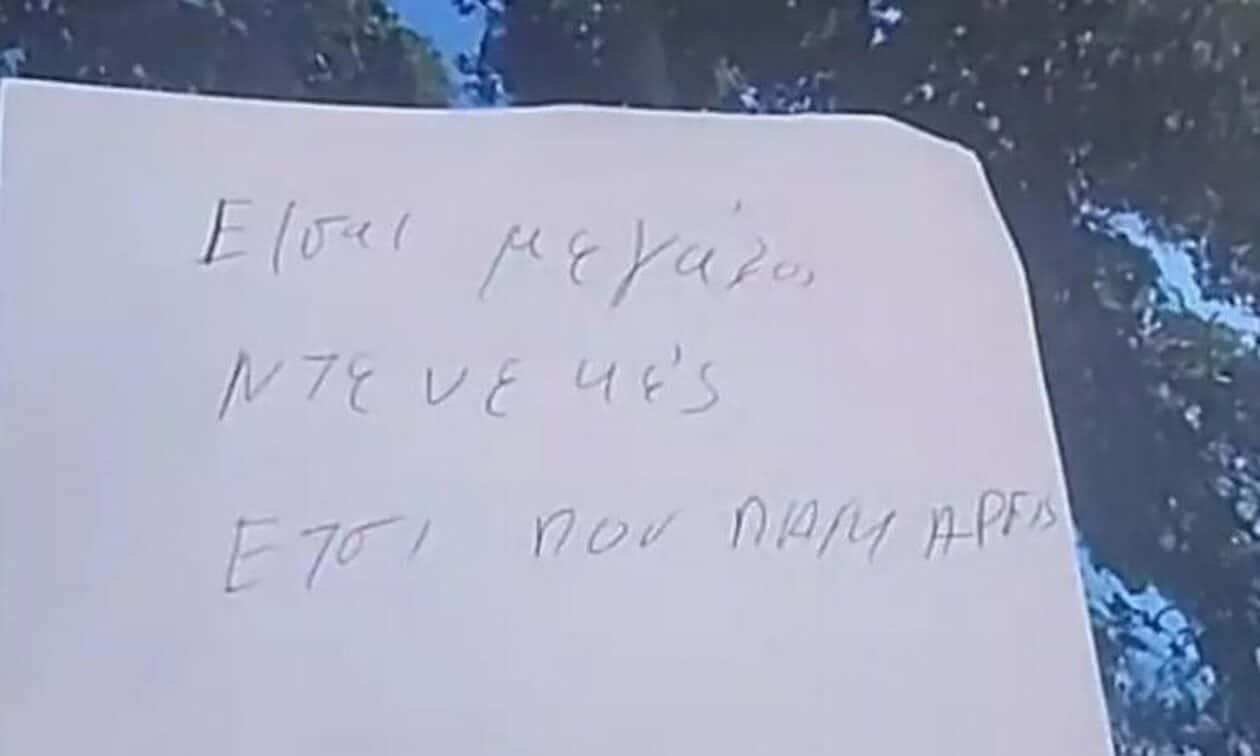 Είσαι μεγάλος
Ντενεκές
Ετσι που ΠΑΡΚΑΡΕΙΣ